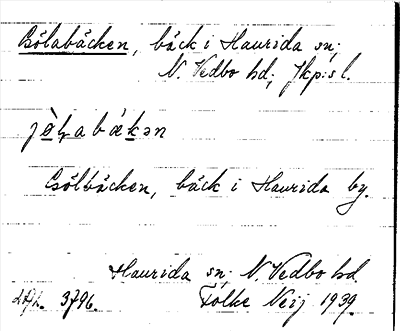 Gölabäcken, bäck i Haurida sn;
N. Vedbo hd; Jkp:s l.
jö̀ɫabäkən
Gölbäcken, bäck i Haurida by.
Haurida sn; N. Vedbo hd
3796. Folke Neij 1939.